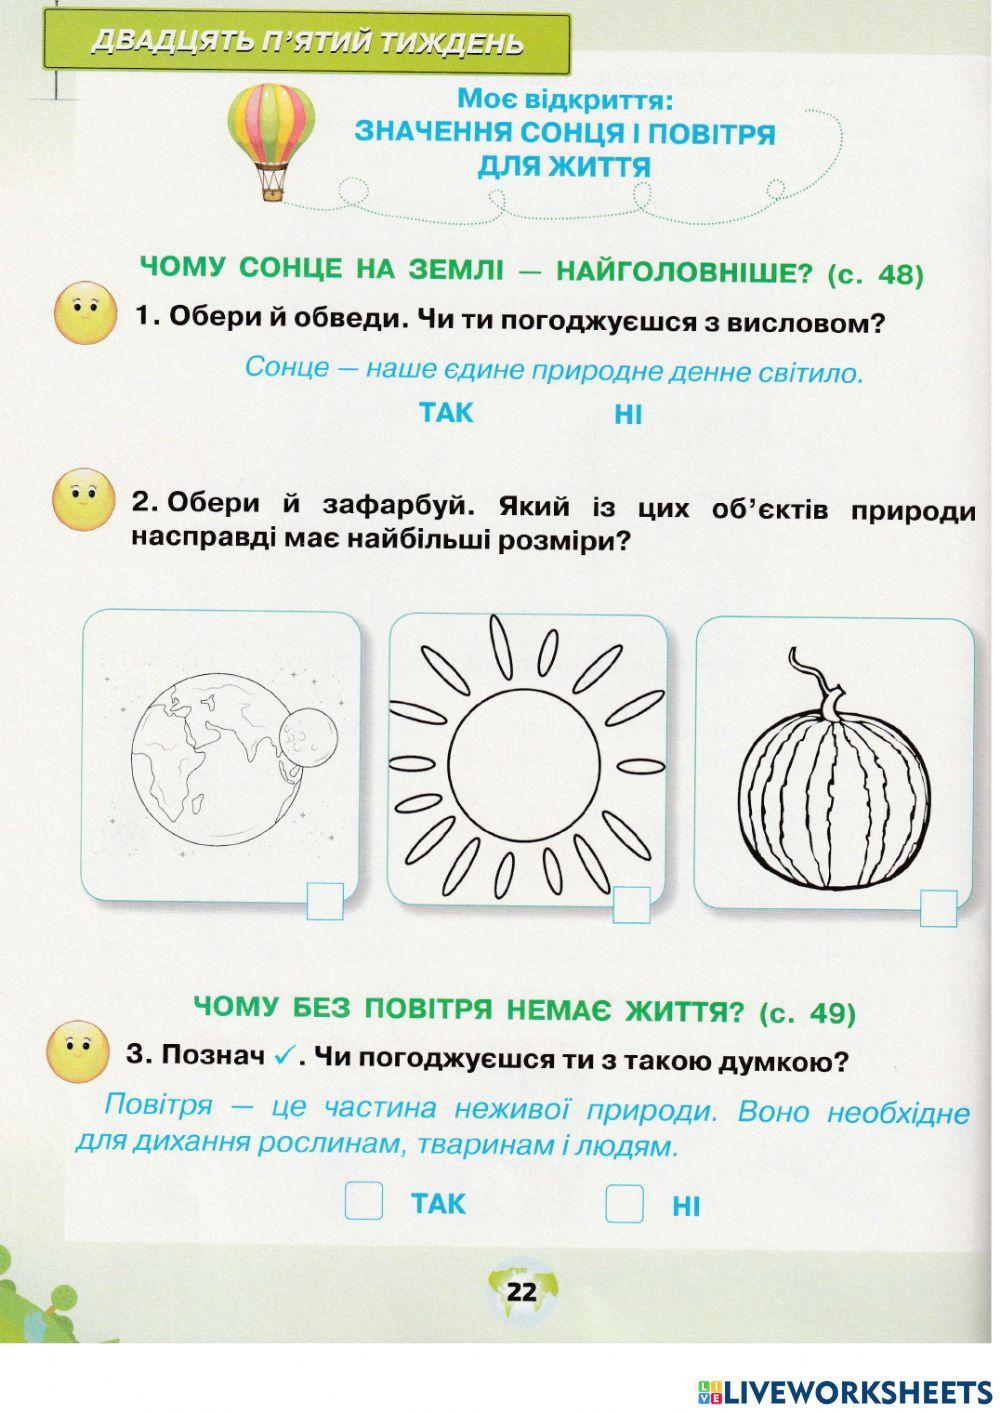 ДВАДЦЯТЬ П’ЯТИЙ ТИЖДЕНЬ
Моє відкриття:
ЗНАЧЕННЯ СОНЦЯ І ПОВІТРЯ
ДЛЯ ЖИТТЯ
ЧОМУ СОНЦЕ НА ЗЕМЛІ — НАЙГОЛОВНІШЕ? (с. 48)
1. Обери й обведи. Чи ти погоджуєшся з висловом?
Сонце — наше єдине природне денне світило.
ТАК НІ
2. Обери й зафарбуй. Який із цих об’єктів природи
насправді має найбільші розміри?
ЧОМУ БЕЗ ПОВІТРЯ НЕМАЄ ЖИТТЯ? (с. 49)
3. Познач ✓. Чи погоджуєшся ти з такою думкою?
Повітря — це частина неживої природи. Воно необхідне
для дихання рослинам, тваринам і людям.
ТАК НІ
22
LIVE LIVEWORKSHEETS